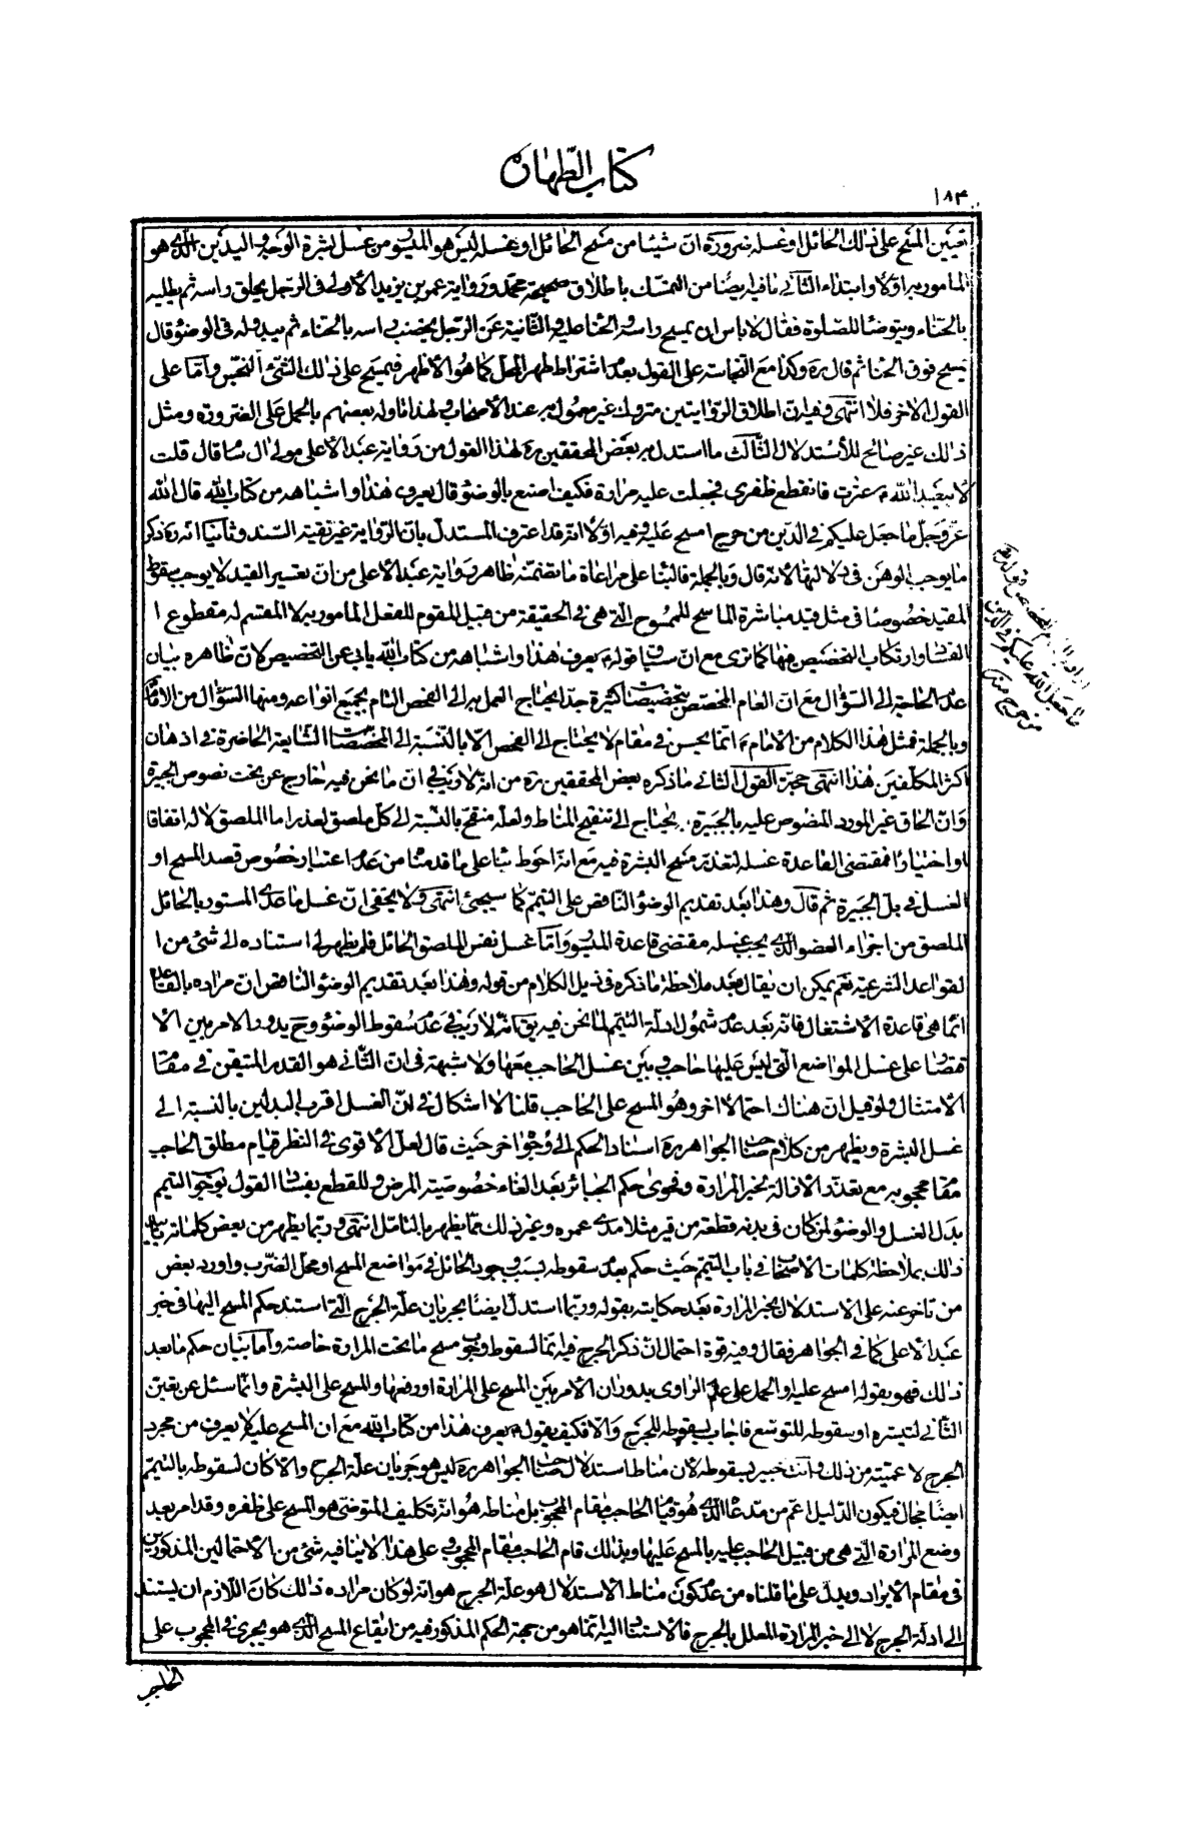 كتاب الطهارة
١٨٤
تعيين المسح على ذلك الحائل او غسله ضرورة ان شيئا من مسح الحائل او غسله ليس هو الميسور من غسل بشرة الوجه و اليدين الذى هو
المامور به اوّلا و ابتداء الثانى ما فيه ايضا من التمسك باطلاق صحيحة محمد و رواية عمر بن يزيد الاولى فى الرّجل يحلق راسه ثم يطليه
بالحنّاء و يتوضأ للصلوة فقال لا باس ان يمسح راسه و الحنا عليه و الثانية عن الرّجل يخضب راسه بالحناء ثم يبدو له فى الوضوء قال
يمسح فوق الحنا ثم قال ره و كذا مع النجاسة على القول بعدم اشتراط طهر المحل كما هو الاظهر فيمسح على ذلك الشئ النجس و امّا على
القول الاخر فلا انتهى و فيه ان اطلاق الروايتين متروك غير معمول به عند الاصحاب و لهذا ماوله بعضهم بالحمل على الضرورة و مثل
ذلك غير صالح للاستدلال الثالث ما استدل به بعض المحققين ره لهذا القول من رواية عبد الاعلى مولى ال سام قال قلت
لابيعبد الله ع عثرت فانقطع ظفرى فجعلت عليه مرارة فكيف اصنع بالوضوء قال يعرف هذا و اشباهه من كتاب الله قال الله
عزّ و جلّ ما جعل عليكم فى الدّين من حرج امسح عليه و فيه اوّلا انه قد اعترف المستدلّ بان الرّواية غير نقية السّند و ثانيا انه ره ذكر
ما يوجب الوهن فى دلالتها لانه قال و بالجملة فالبناء على مراعاة ما تضمنته ظاهر رواية عبد الاعلى من ان تعسير القيد لا يوجب سقوط
المقيد خصوصا فى مثل قيد مباشرة الماسح للممسوح التى هى فى الحقيقة من قبيل المقوم للفعل المامور به لا المقسم له مقطوع ا
لفساد و ارتكاب التخصيص فيها كما ترى مع ان سياق قوله ع يعرف هذا و اشباهه من كتاب الله يابى عن التخصيص لان ظاهره بيان
عدم الحاجة الى السؤال مع ان العام المخصّص بتخصيصات كثيرة جدا يحتاج العمل به الى الفحص التام بجميع انواعه و منها السّؤال من الامام
و بالجملة فمثل هذا الكلام من الامام ع انما يحسن فى مقام لا يحتاج الى الفحص الا بالنسبة الى المخصّصات الشايعة الحاضرة فى اذهان
اكثر المكلّفين هذا انتهى حجة القول الثانى ما ذكره بعض المحققين ره من انه لا ريب فى ان ما نحن فيه خارج عن تحت نصوص الجبيرة
و ان الحاق غير المورد المنصوص عليه بالجبيرة يحتاج الى تنقيح المناط و لعله منقح بالنسبة الى كلّ ملصق لعذر اما الملصق لا له اتفاقا
او اختيارا فمقتضى القاعدة غسله لتعذر مسح البشرة فيه مع انه احوط بناء على ما قدمنا من عدم اعتبار خصوص قصد المسح او
الغسل فى بدل الجبيرة ثم قال و هذا بعد تقديم الوضوء الناقص على التيمّم كما سيجئ انتهى و لا يخفى ان غسل ما عدى المستور بالحائل
الملصق من اجزاء العضو الذى يجب غسله مقتضى قاعدة الميسور و امّا غسل نفس الملصق الحائل فلم يظهر لى استناده الى شئ من ا
لقواعد الشرعية نعم يمكن ان يقال بعد ملاحظة ما ذكره فى ذيل الكلام من قوله و هذا بعد تقديم الوضوء الناقص ان مراده بالقاعدة
انّما هى قاعدة الاشتغال فانه بعد عدم شمول ادلة التيمّم لما نحن فيه يق انه لا ريب فى عدم سقوط الوضوء و ح يدور الامر بين الا
قتصار على غسل المواضع التى ليس عليها حاجب و بين غسل الحاجب معها و لا شبهة فى ان الثّانى هو القدر المتيقن فى مقام
الامتثال و لو قيل ان هناك احتمالا اخر و هو المسح على الحاجب قلنا لا اشكال فى ان الغسل اقرب البدلين بالنسبة الى
غسل البشرة و يظهر من كلام صاحب الجواهر ره استناد الحكم الى وجوه اخر حيث قال لعلّ الاقوى فى النظر قيام مطلق الحاجب
مقام محجوبه مع تعذر الازالة لخبر المرارة و فحوى حكم الجبائر بعد الغاء خصوصية المرض و للقطع بفساد القول بوجوب التيمم
بدل الغسل و الوضوء لمن كان فى بدنه قطعة من قير مثلا مدى عمره و غير ذلك ممّا يظهر بالتامّل انتهى و ربّما يظهر من بعض كلماته تاييد
ذلك بملاحظة كلمات الاصحاب فى باب التيمّم حيث حكم بعدم سقوطه بسبب وجود الحائل فى مواضع المسح او محلّ الضّرب و اورد بعض
من تاخر عنه على الاستدلال بخبر المرارة بعد حكايته بقوله و ربّما استدلّ ايضا بجريان علّة الحرج التى استند حكم المسح اليها فى خبر
عبد الاعلى كما فى الجواهر فقال و فيه قوة احتمال ان ذكر الحرج فيه انّما لسقوط وجوب مسح ما تحت المرارة خاصة و اما بيان حكم ما بعد
ذلك فهو بقوله امسح عليه او الحمل على علم الراوى بدوران الامر بين المسح على المرارة او رفعها و المسح على البشرة و انّما سئل عن تعين
الثّانى لتيسّره او سقوطه للتوسّع فاجاب بسقوطه للحرج و الا فكيف يقول ع يعرف هذا من كتاب الله مع ان المسح عليه لا يعرف من مجرد
الحرج لاعميّته من ذلك و انت خبير بسقوطه لان مناط استدلال صاحب الجواهر ره ليس هو جريان علّة الحرج و الا لكان لسقوطه بالتيمّم
ايضا مجال فيكون الدّليل اعم من مدّعاه الذى هو قيام الحاجب مقام المحجوب بل مناطه هو انه تكليف المتوضى هو المسح على ظفره و قد امر بعد
وضع المرارة التى هى من قبيل الحاجب عليه بالمسح عليها و بذلك قام الحاجب مقام المحجوب و على هذا لا ينافيه شئ من الاحتمالين المذكورين
فى مقام الايراد و يدلّ على ما قلناه من عدم كون مناط الاستدلال هو علّة الحرج هو انه لو كان مراده ذلك كان اللّازم ان يستند
الى ادلّة الحرج لا الى خبر المرارة المعلل بالحرج فالاستناد اليه انّما هو من جهة الحكم المذكور فيه من ايقاع المسح الذى هو يجرى فى المحجوب على
الحاجب
ما جعل الله عليكم فى الدين
من حرج منه